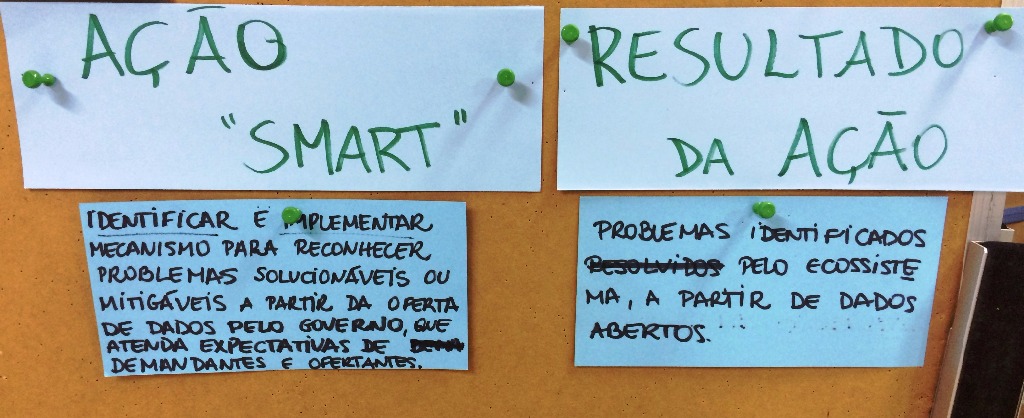 AÇÃO
"SMART"
IDENTIFICAR E IMPLEMENTAR
MECANISMO PARA RECONHECER
PROBLEMAS SOLUCIONÁVEIS OU
MITIGÁVEIS A PARTIR DA OFERTA
DE DADOS PELO GOVERNO, QUE
ATENDA EXPECTATIVAS DE
DEMANDANTES E OFERTANTES.
RESULTADO
DA AÇÃO
PROBLEMAS IDENTIFICADOS
RESOLVIDOS PELO ECOSSISTE
MA, A PARTIR DE DADOS
ABERTOS.